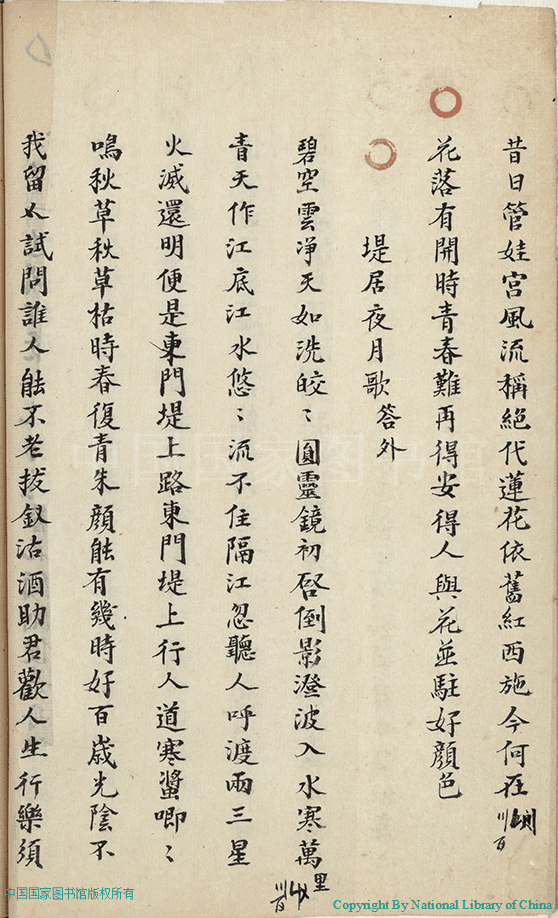 昔日管娃宮風流稱絕代蓮花依舊紅西施今何在
花落有開時青春難再得安得人與花並駐好顏色
堤居夜月歌答外
碧空雲凈天如洗皎〻圓靈鏡初啓倒影澄波入水寒萬里
青天作江底江水悠〻流不住隔江忽聽人呼渡兩三星
火滅還明便是東門堤上路東門堤上行人道寒螿唧〻
鳴秋草秋草枯時春復青朱顏能有幾時好百歲光陰不
我留以試問誰人能不老拔釵沽酒助君歡人生行樂須
中国国家图书馆
中国国家图书馆版权所有
Copyright By National Library of China